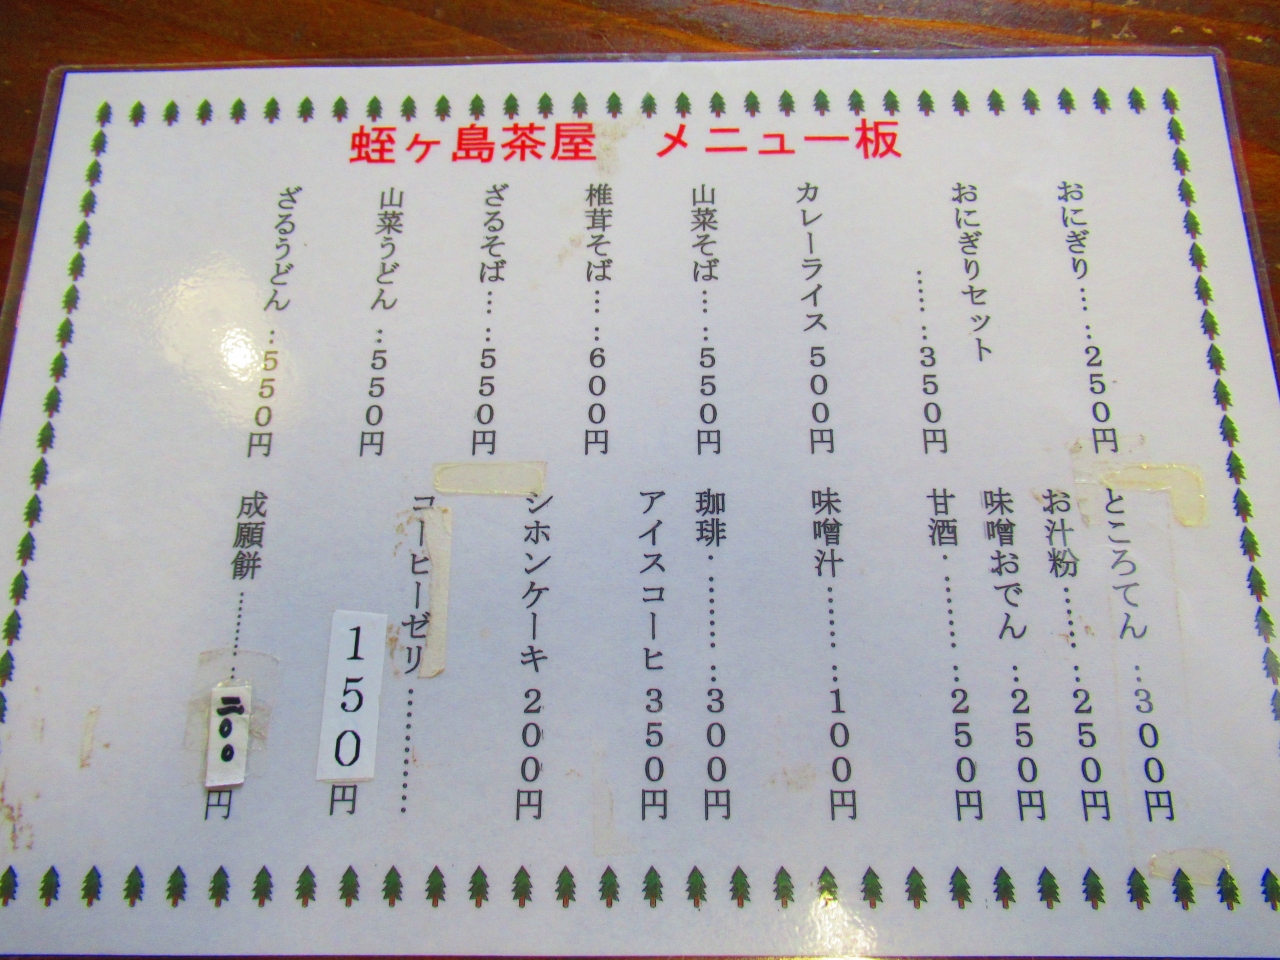 蛭ヶ島茶屋　メニュー板
おにぎり‥‥‥250円
おにぎりセット
‥‥‥350円
カレーライス 500円
山菜そば‥‥550円
椎茸そば‥‥600円
ざるそば‥‥550円
山菜うどん‥550円
ざるうどん‥550円
ところてん‥300円
お汁粉‥‥‥250円
味噌おでん‥250円
甘酒‥‥‥‥250円
味噌汁‥‥‥100円
珈琲‥‥‥‥300円
アイスコーヒ 350円
シホンケーキ 200円
コーヒーゼリ‥‥‥‥
150円
成願餅‥‥‥二〇〇円